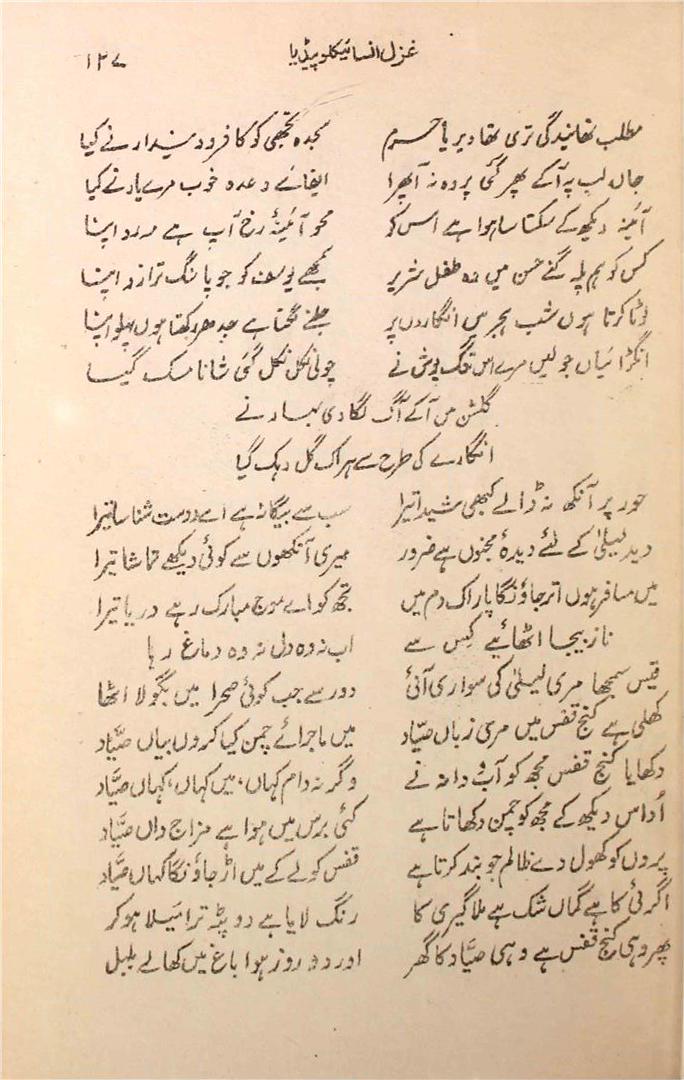 غزل انسائیکلوپیڈیا ۱۲۷
مطلب تھا بندگی تری تھا دیر یا حرم سجدہ تجھی کو کافر و دیندار نے کیا
جاں لب پہ آ کے پھر گئی پردہ نہ آ پھرا ایفائے وعدہ خوب مرے یار نے کیا
آئینہ دیکھ کے سکتا سا ہوا ہے اس کو محو آئینۂ رخ آپ ہے مہ رو اپنا
کس کو ہم پلہ گنے حسن میں وہ طفل شریر سمجھے یوسف کو جو پاسنگ ترازو اپنا
لوٹا کرتا ہوں شب ہجر میں انگاروں پر جلنے لگتا ہے جدھر رکھتا ہوں پہلو اپنا
انگڑائیاں جو لیں مرے اس تنگ پوش نے چولی نکل نکل گئی شانا مسک گیا
گلشن میں آ کے آگ لگا دی بہار نے
انگارے کی طرح سے ہر اک گل دہک گیا
حور پر آنکھ نہ ڈالے کبھی شیدا تیرا سب سے بیگانہ ہے اے دوست شناسا تیرا
دید لیلیٰ کے لئے دیدۂ مجنوں ہے ضرور میری آنکھوں سے کوئی دیکھے تماشا تیرا
میں مسافر ہوں اتر جاؤنگا پار اک دم میں تجھ کو اے موج مبارک رہے دریا تیرا
ناز بیجا اٹھائیے کِس سے اب نہ وہ دل نہ وہ دماغ رہا
قیس سمجھا مری لیلیٰ کی سواری آئی دور سے جب کوئی صحرا میں بگولا اٹھا
کھلی ہے کنج قفس میں مری زباں صیّاد میں ماجرائے چمن کیا کروں بیاں صیّاد
دکھایا کنج قفس مجھ کو آب و دانہ نے وگرنہ دام کہاں، میں کہاں، کہاں صیّاد
اُداس دیکھ کے مجھ کو چمن دکھاتا ہے کئی برس میں ہوا ہے مزاج داں صیّاد
پروں کو کھول دے ظالم جو بند کرتا ہے قفس کو لے کے میں اڑ جاؤنگا کہاں صیّاد
اگرئی کا ہے گماں شک ہے ملاگیری کا رنگ لایا ہے دوپٹہ ترا میلا ہو کر
پھر وہی کنج قفس ہے وہی صیّاد کا گھر اور دو روز ہوا باغ میں کھا لے بلبل